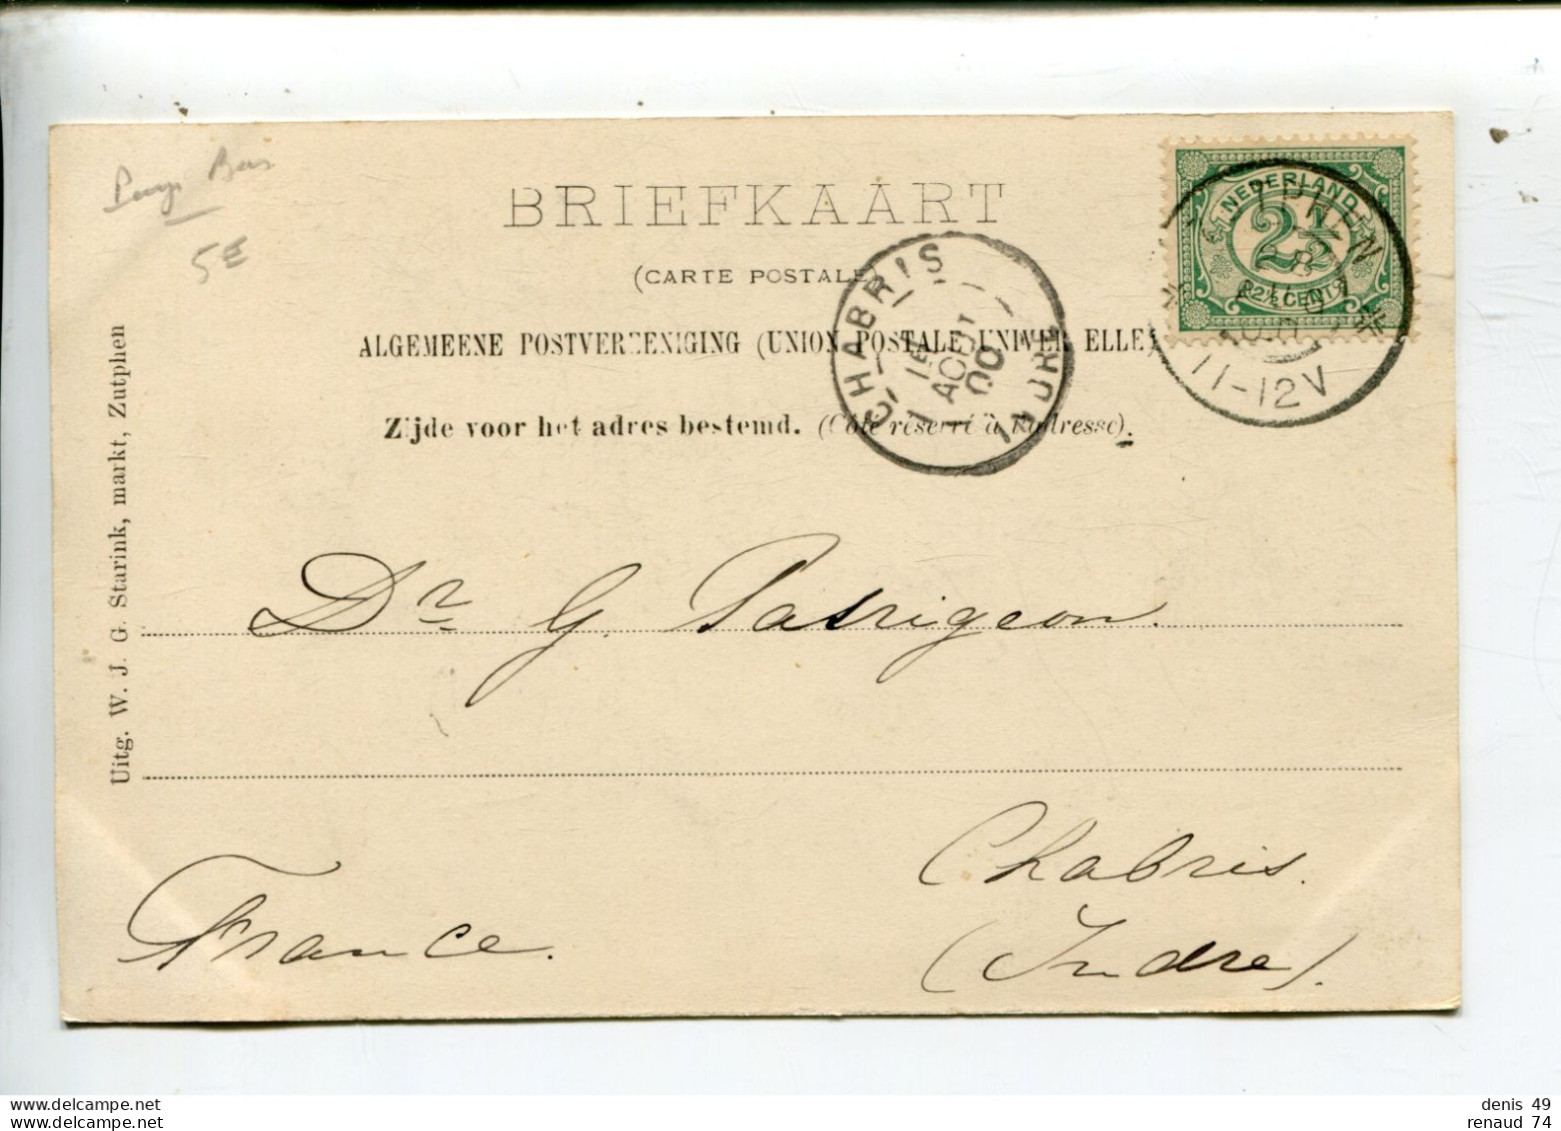 Pays Bas
5E
BRIEFKAART
(CARTE POSTALE
ALGEMEENE POSTVEREENIGING (UNION POSTALE UNIVERSELLE)
Zijde voor het adres bestemd. (Côté réservé à l'adresse).
NEDERLAND
2½
2½ CENT
ZUTPHEN
11-12V
CHABRIS
AOUT
00
INDRE
Uitg. W. J. G. Starink, markt, Zutphen
Dr G. Patrigeon.
Chabris.
France.
(Indre).
www.delcampe.net
denis 49
renaud 74